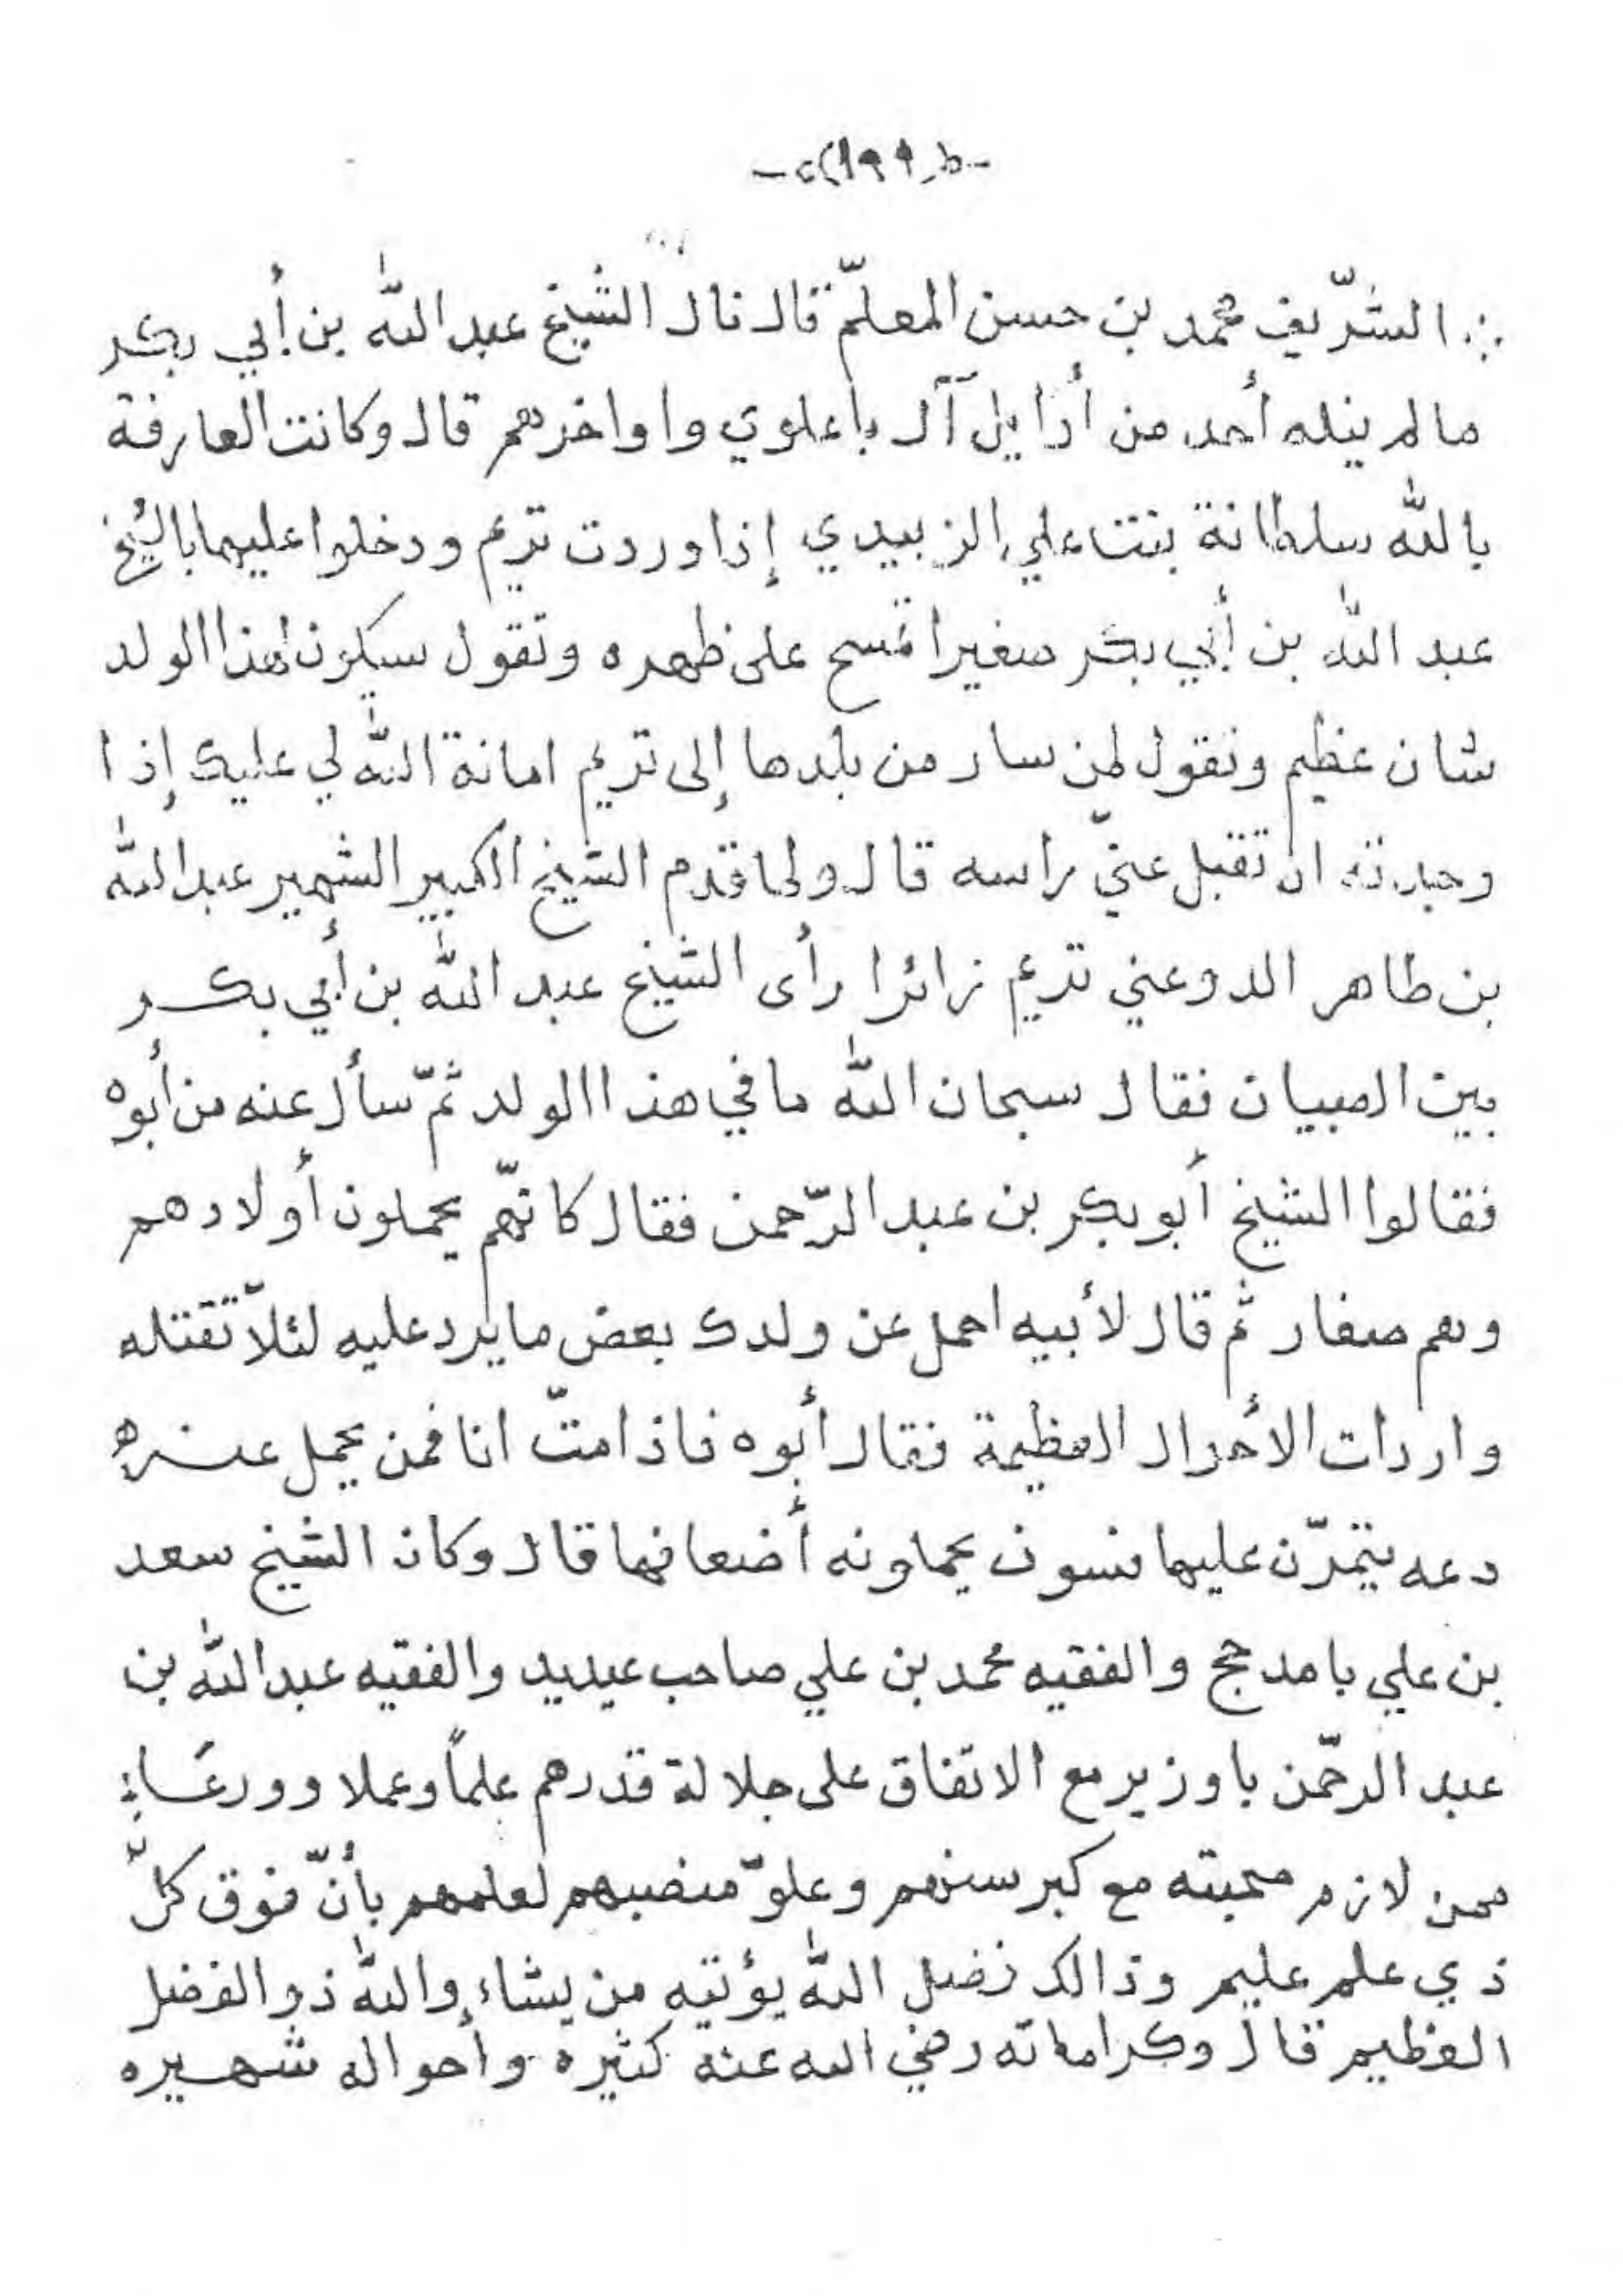 -(١٩٩)-
الشّريف محمد بن حسن المعلّم قال نال الشيخ عبد الله بن أبي بكر
ما لم ينله أحد من أوايل آل باعلوي واواخرهم قال وكانت العارفة
بالله سلطانة بنت علي الزبيدي إذا وردت تريم ودخلوا عليها بالشيخ
عبد الله بن أبي بكر صغيرا تمسح على ظهره وتقول سيكون لهذا الولد
شان عظيم وتقول لمن سار من بلدها إلى تريم امانة الله لي عليك إذا
وجدته ان تقبل عنيّ راسه قال ولما قدم الشيخ الكبير الشهير عبد الله
بن طاهر الدوعني تريم زائرا رأى الشيخ عبد الله بن أبي بكر
بين الصبيان فقال سبحان الله ما في هذا الولد ثمّ سأل عنه من أبوه
فقالوا الشيخ أبو بكر بن عبد الرّحمن فقال كانهّم يحملون أولادهم
وهم صغار ثم قال لأبيه احمل عن ولدك بعض ما يرد عليه لئلاّ تقتله
واردات الأحوال العظيمة فقال أبوه فاذا متّ انا فمن يحمل عنه
دعه يتمرّن عليها فسوف يحملونه أضعافها قال وكان الشيخ سعد
بن علي بامدحج والفقيه محمد بن علي صاحب عيديد والفقيه عبد الله بن
عبد الرحّمن باوزير مع الاتفاق على جلالة قدرهم علماً وعملا وورعًا
ممن لازم صحبته مع كبر سنهم وعلوّ منصبهم لعلمهم بأنّ فوق كلّ
ذي علم عليم وذالك فضل الله يؤتيه من يشاء والله ذو الفضل
العظيم قال وكراماته رضي الله عنه كثيره وأحواله شهيره